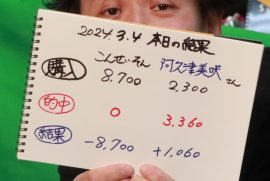 2024.3.4 本日の結果
購入 こんどいそん 阿久津美咲さん
8,700 2,300
的中 0 3,360
結果 -8,700 +1,060